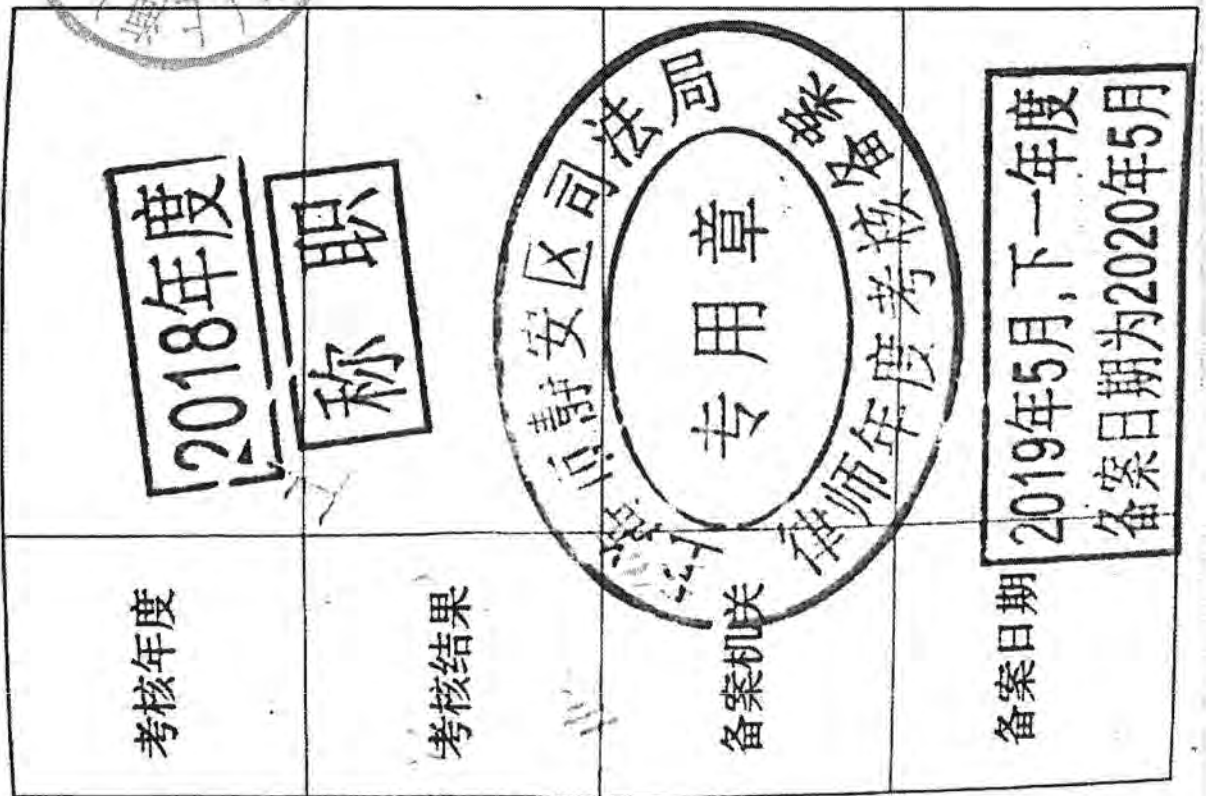 考核年度
2018年度
考核结果
称职
备案机关
上海市静安区司法局
专用章
律师年度考核备案
备案日期
2019年5月,下一年度
备案日期为2020年5月